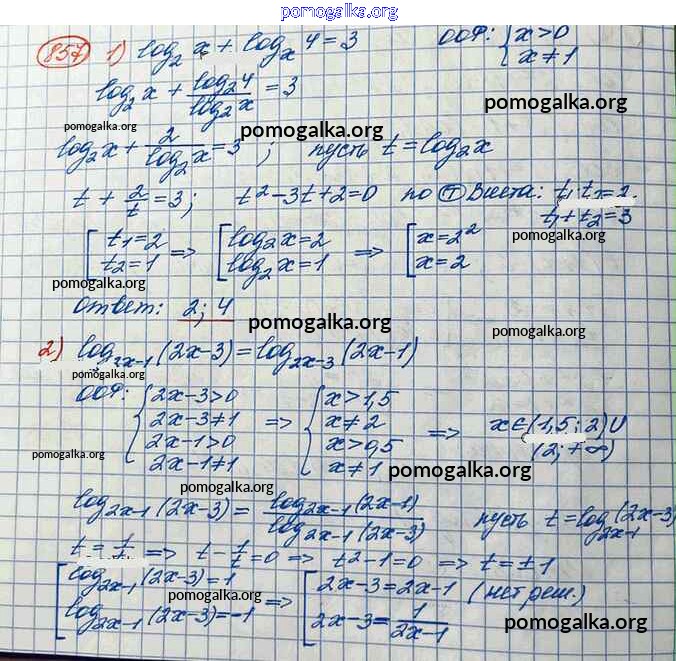 pomogalka.org
857 1) log₂ x + logₓ 4 = 3   ООФ: { x > 0
x ≠ 1
log₂ x + log₂4 / log₂x = 3
pomogalka.org
pomogalka.org
pomogalka.org
log₂ x + 2 / log₂x = 3 ;   пусть t = log₂x
t + 2/t = 3;   t² - 3t + 2 = 0   по Т Виета: t₁·t₂ = 2
t₁ + t₂ = 3
pomogalka.org
[ t₁ = 2   =>   [ log₂x = 2   =>   [ x = 2²
t₂ = 1   log₂x = 1   x = 2
pomogalka.org
ответ: 2; 4
pomogalka.org
pomogalka.org
2) log₂ₓ₋₁ (2x-3) = log₂ₓ₋₃ (2x-1)
pomogalka.org
ООФ: { 2x-3 > 0   =>   { x > 1,5   =>   x ∈ (1,5; 2) ∪
2x-3 ≠ 1   x ≠ 2   (2; +∞)
2x-1 > 0   x > 0,5
2x-1 ≠ 1   x ≠ 1
pomogalka.org
pomogalka.org
pomogalka.org
log₂ₓ₋₁ (2x-3) = log₂ₓ₋₁ (2x-1) / log₂ₓ₋₁ (2x-3)   пусть t = log₂ₓ₋₁ (2x-3)
t = 1/t => t - 1/t = 0 => t² - 1 = 0 => t = ±1
[ log₂ₓ₋₁ (2x-3) = 1   =>   [ 2x-3 = 2x-1 (нет реш.)
log₂ₓ₋₁ (2x-3) = -1   2x-3 = 1 / 2x-1
pomogalka.org
pomogalka.org